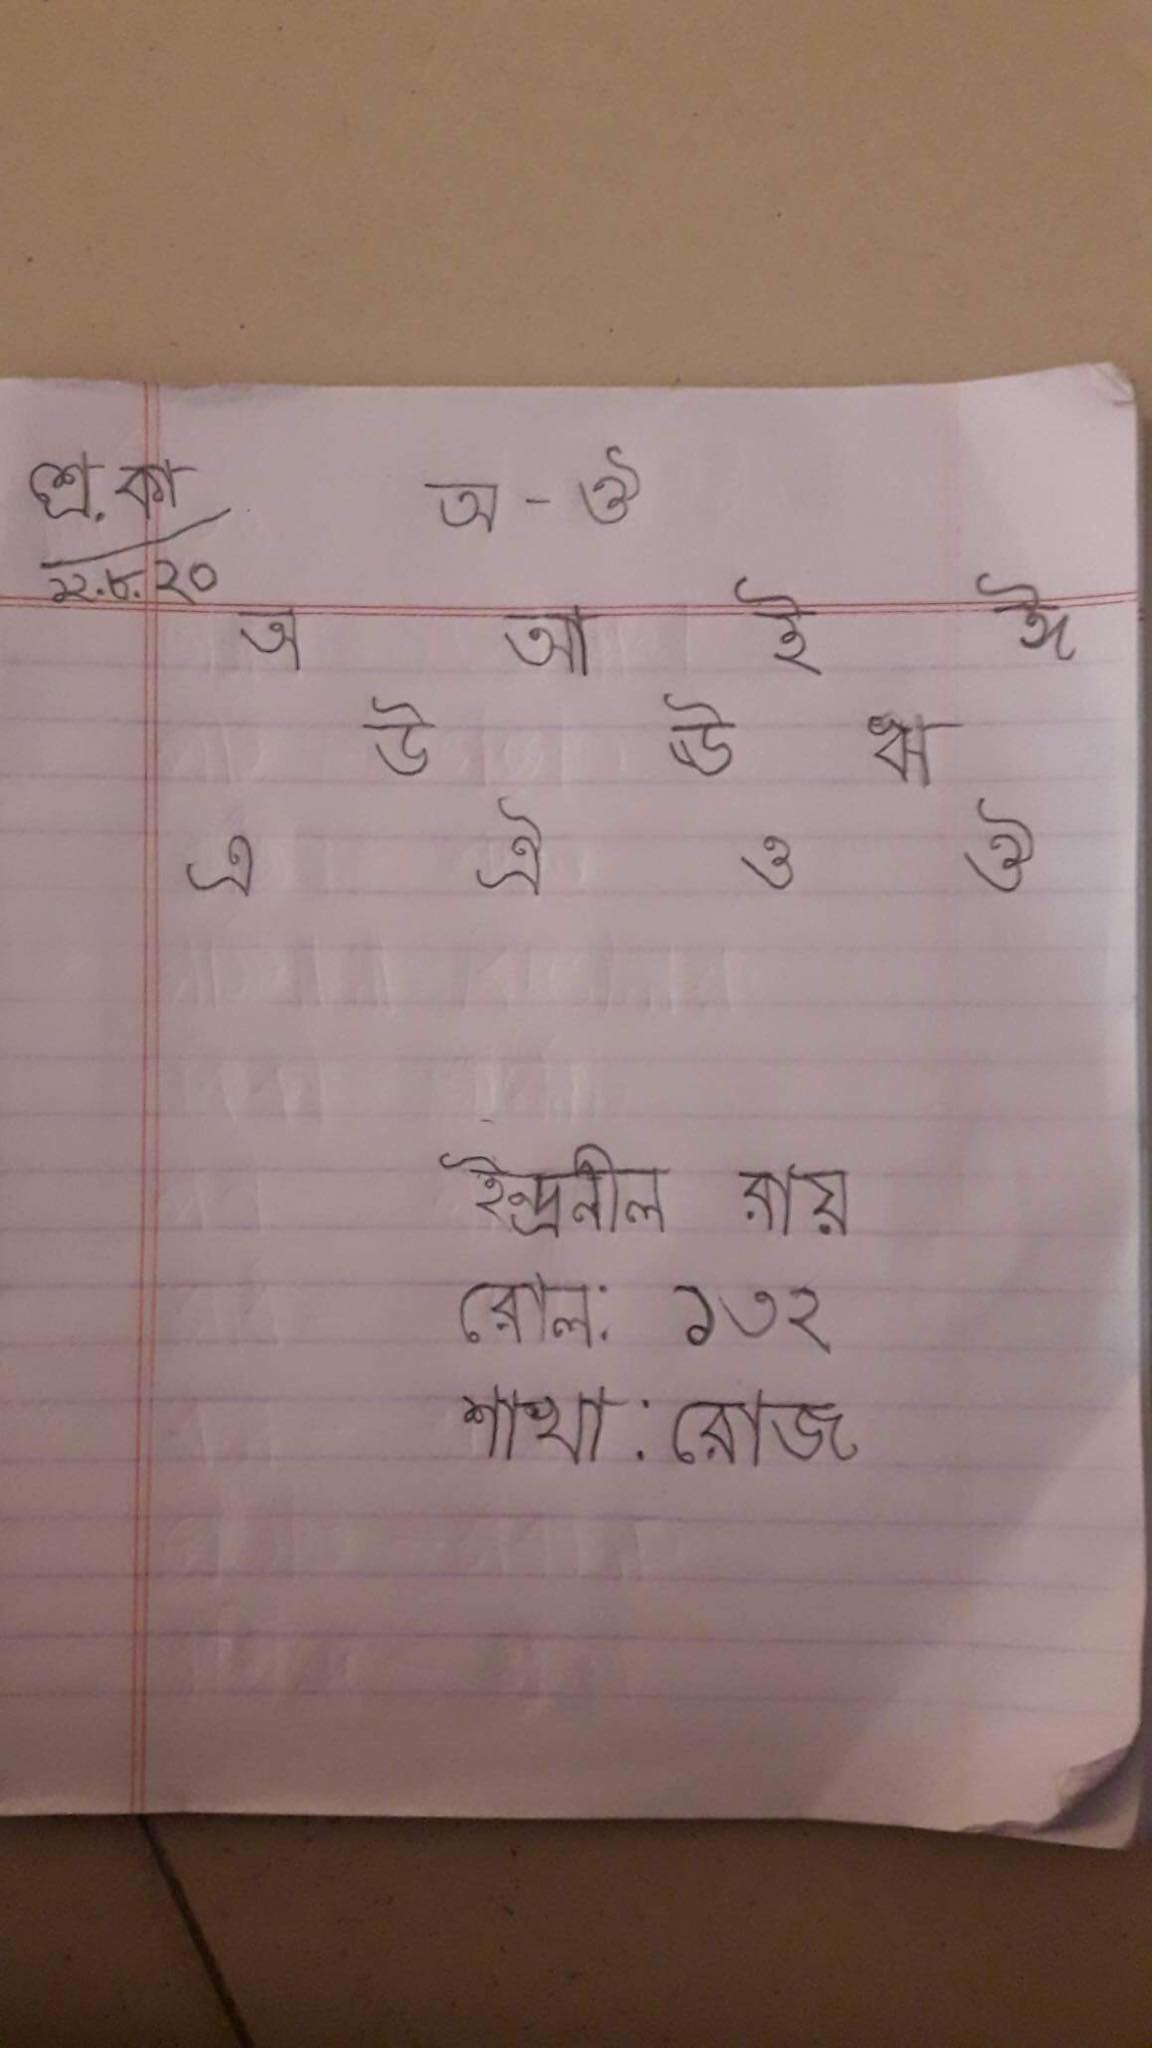 শ্র.কা
অ - ঔ
১২.৮.২০
অ আ ই ঈ
উ ঊ ঋ
এ ঐ ও ঔ
ইন্দ্রনীল রায়
রোল: ১৩২
শাখা : রোজ